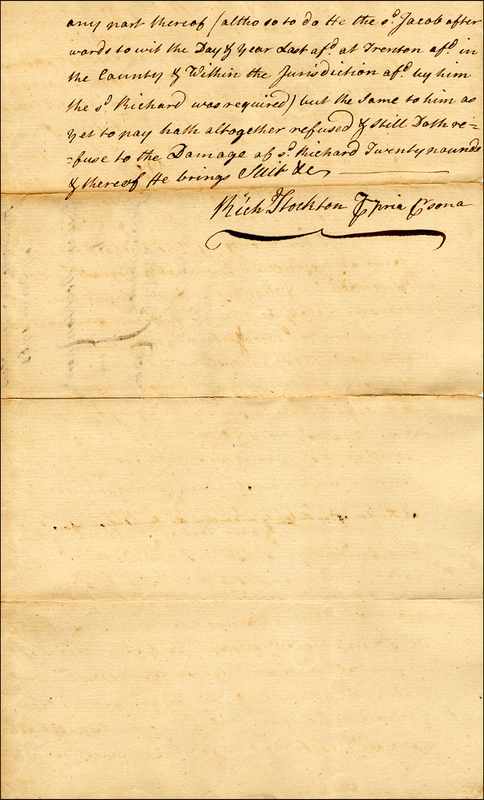 any part thereof (altho so to do He the sd. Jacob after
wards to wit the Day & Year Last afd. at Trenton afd. in
the County & Within the Jurisdiction afd. by him
the sd. Richard was required) but the same to him as
yet to pay hath altogether refused & Still Doth re-
-fuse to the Damage of sd. Richard Twenty pounds
& thereof He brings Suit &c
Richd Stockton